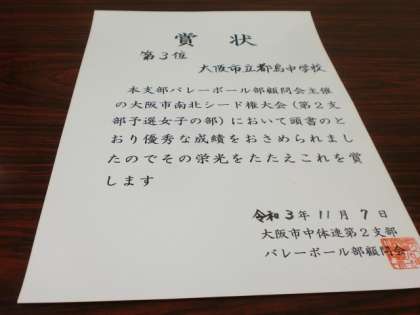 賞状
第3位
大阪市立都島中学校
本支部バレーボール部顧問会主催
の大阪市南北シード権大会(第2支
部予選女子の部)において頭書のと
おり優秀な成績をおさめられまし
たのでその栄光をたたえこれを賞
します
令和3年11月7日
大阪市中体連第2支部
バレーボール部顧問会